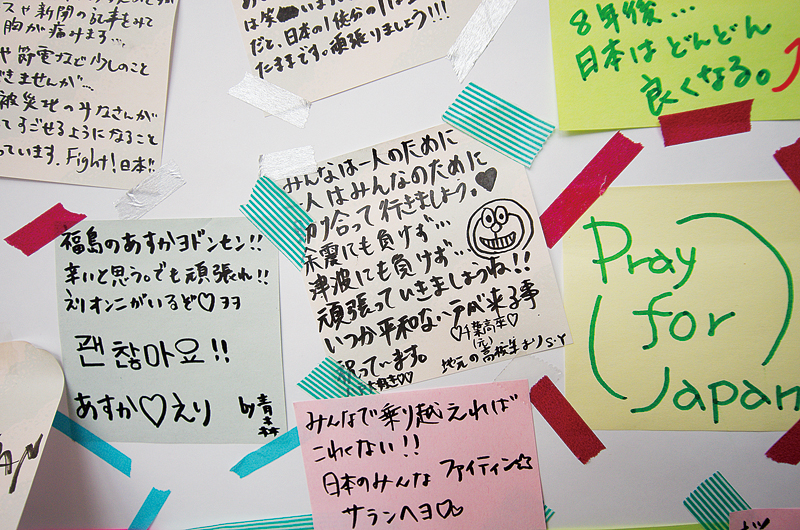 スや新聞の記事もみて
胸が痛みます…。
や節電など少しのこと
できませんが…
被災地のみなさんが
ってすごせるようになること
っています。Fight!日本!!
は笑
だと、日本の1徒分の1は
たままです。頑張りましょう!!!
8年後…
日本はどんどん
良くなる。
みんなは一人のために
一人はみんなのために
助け合って行きましょう。♥
余震にも負けず…
津波にも負けず…
頑張っていきましょうね!!
いつか平和な
が来る事
祈っています。
♡千葉高卒♡
(元)
地元の高校生よりS・Y
福島のあすかヨドンセン!!
辛いと思う。でも頑張れ!!
えりオンニがいるぞ♡ヨヨ
괜찮아요!!
あすか♡えり by青森
Pray
(for)
Japan
みんなで乗り越えれば
こわくない!!
日本のみんな ファイティン☆
サランヘヨ♡